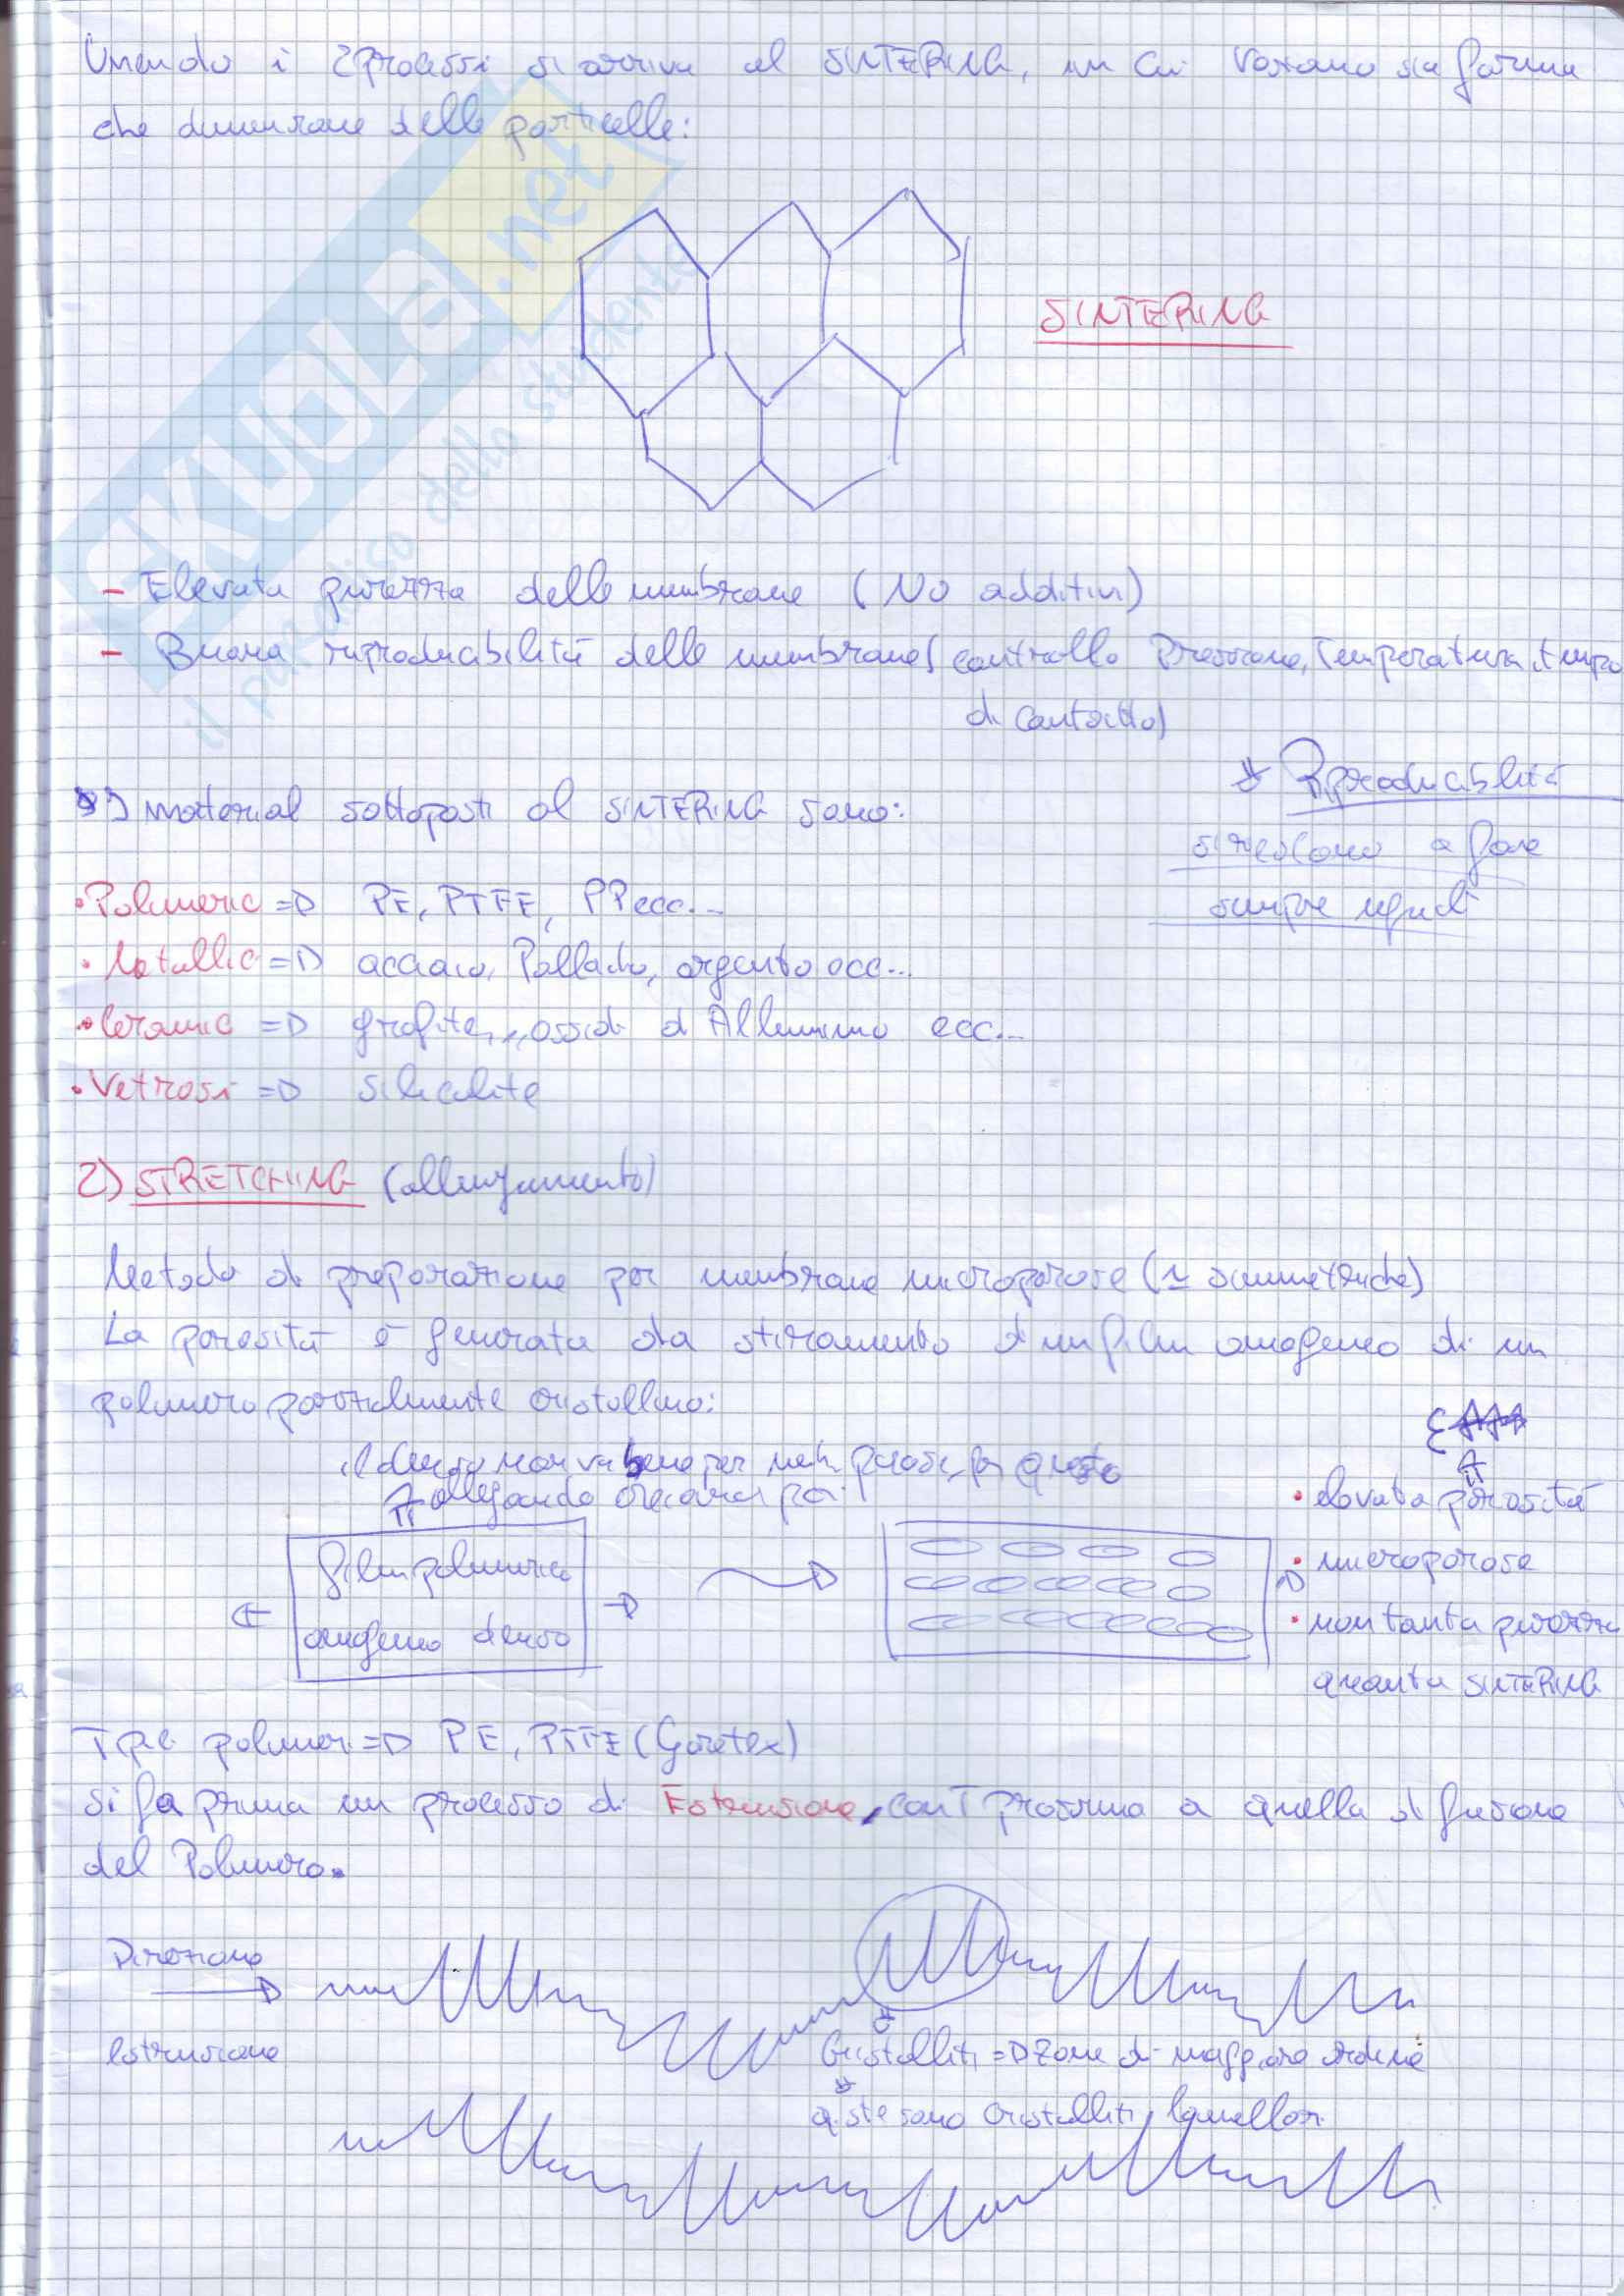 Unendo i 2 processi si arriva al SINTERING, in cui variano sia forma
che dimensione delle particelle:
SKUOLA.net
il paradiso dello studente
SINTERING
- Elevata purezza delle membrane (No additivi)
- Buona riproducibilità delle membrane (controllo Pressione, Temperatura, tempo
di contatto)
* Riproducibilità
si riescono a fare
sempre uguali
I materiali sottoposti al SINTERING sono:
• Polimerici => PE, PTFE, PP ecc...
• Metallici => acciaio, Palladio, argento ecc...
• Ceramici => grafite, ossidi di Alluminio ecc...
• Vetrosi => Silicalite
2) STRETCHING (allungamento)
Metodo di preparazione per membrane microporose (≃ simmetriche)
La porosità è generata da stiramento d'un film omogeneo di un
polimero parzialmente cristallino:
il denso non va bene per memb. porose, per questo
allungando creiamo i pori
film polimerico
omogeneo denso
ε
• elevata porosità
• microporose
• non tanta purezza
quanta SINTERING
Tipi polimeri => PE, PTFE (Goretex)
Si fa prima un processo di Estrusione, con T prossima a quella di fusione
del Polimero.
Direzione
estrusione
Cristalliti => Zone di maggiore ordine
q.ste sono cristalliti lamellari